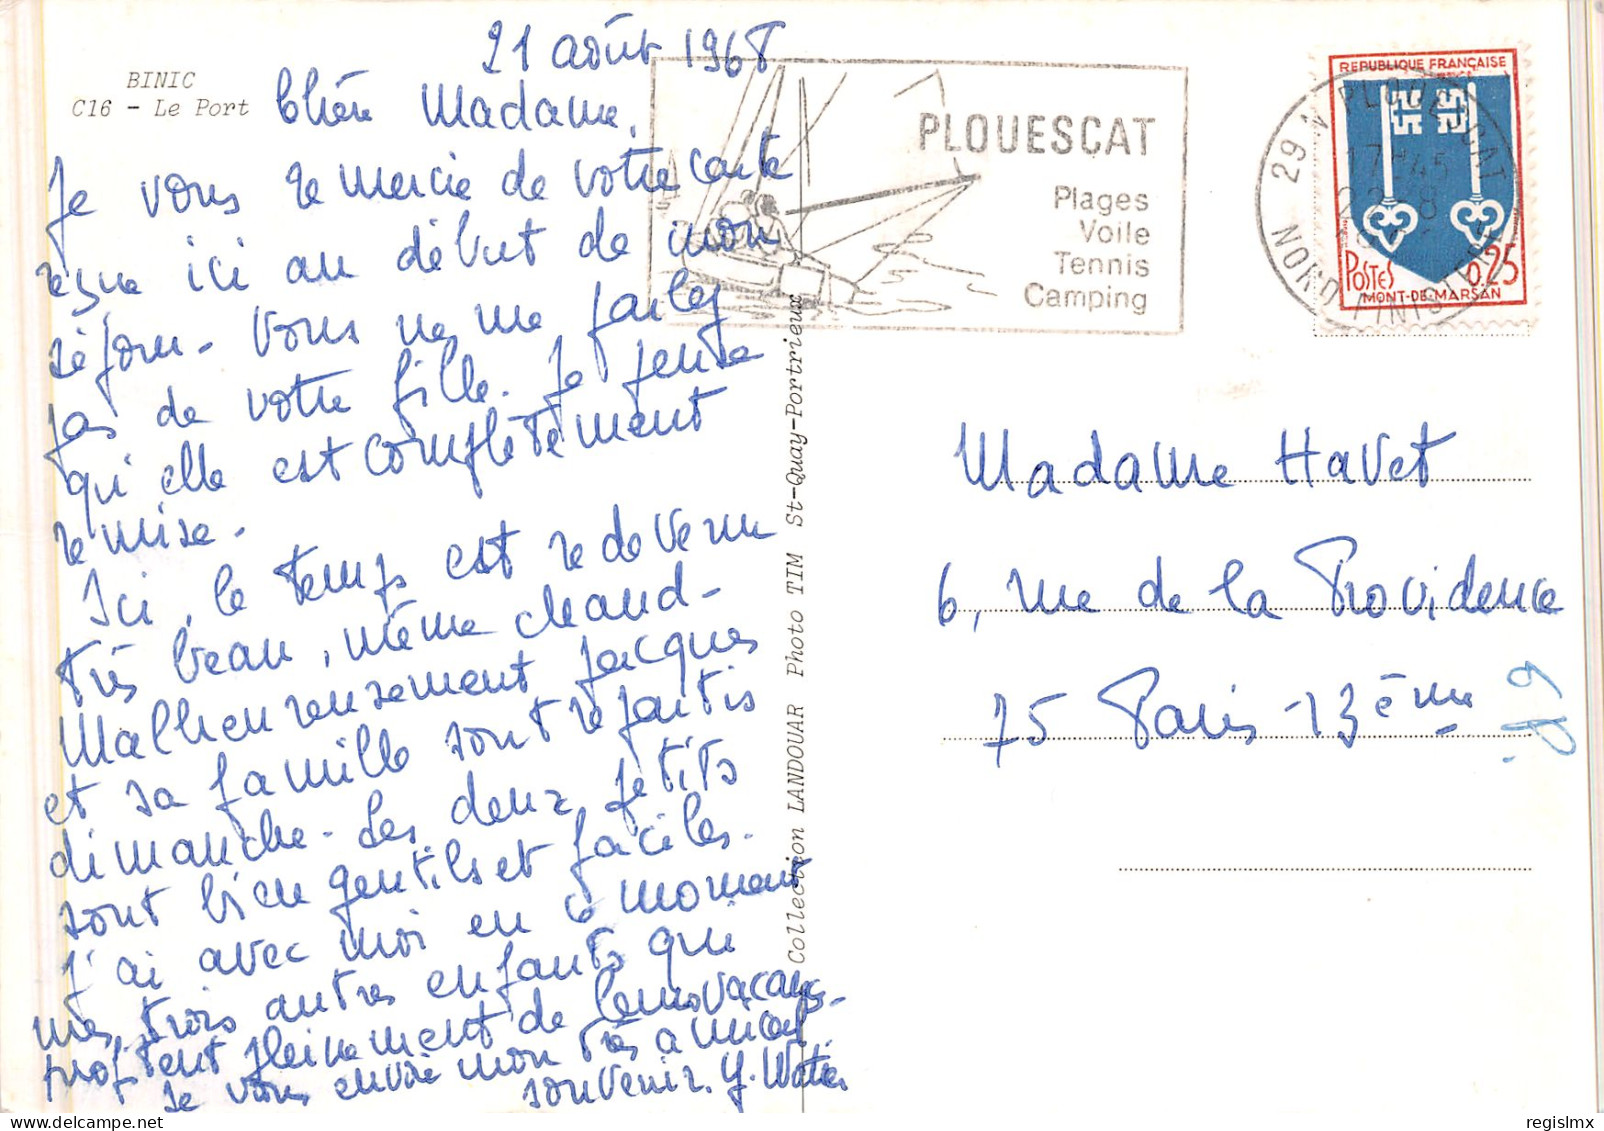 21 août 1968
BINIC
C16 - Le Port
Chère Madame,
Je vous remercie de votre carte
reçue ici au début de mon
séjour. Vous ne me parlez
pas de votre fille. Je pense
qu'elle est complètement
remise.
Ici, le temps est redevenu
très beau, même chaud.
Malheureusement Jacques
et sa famille sont repartis
dimanche. Les deux petits
sont bien gentils et faciles.
J'ai avec moi en ce moment
mes trois autres enfants qui
profitent pleinement de leurs vacances.
Je vous envoie mon très amical
souvenir. Y.
Collection LANDOUAR Photo TIM St-Quay-Portrieux
PLOUESCAT
Plages
Voile
Tennis
Camping
29 N PLOUESCAT
17H45
NORD FINISTERE
REPUBLIQUE FRANÇAISE
POSTES
0,25
MONT-DE-MARSAN
Madame Havet
6, rue de la Providence
75 Paris-13ème
regislmx